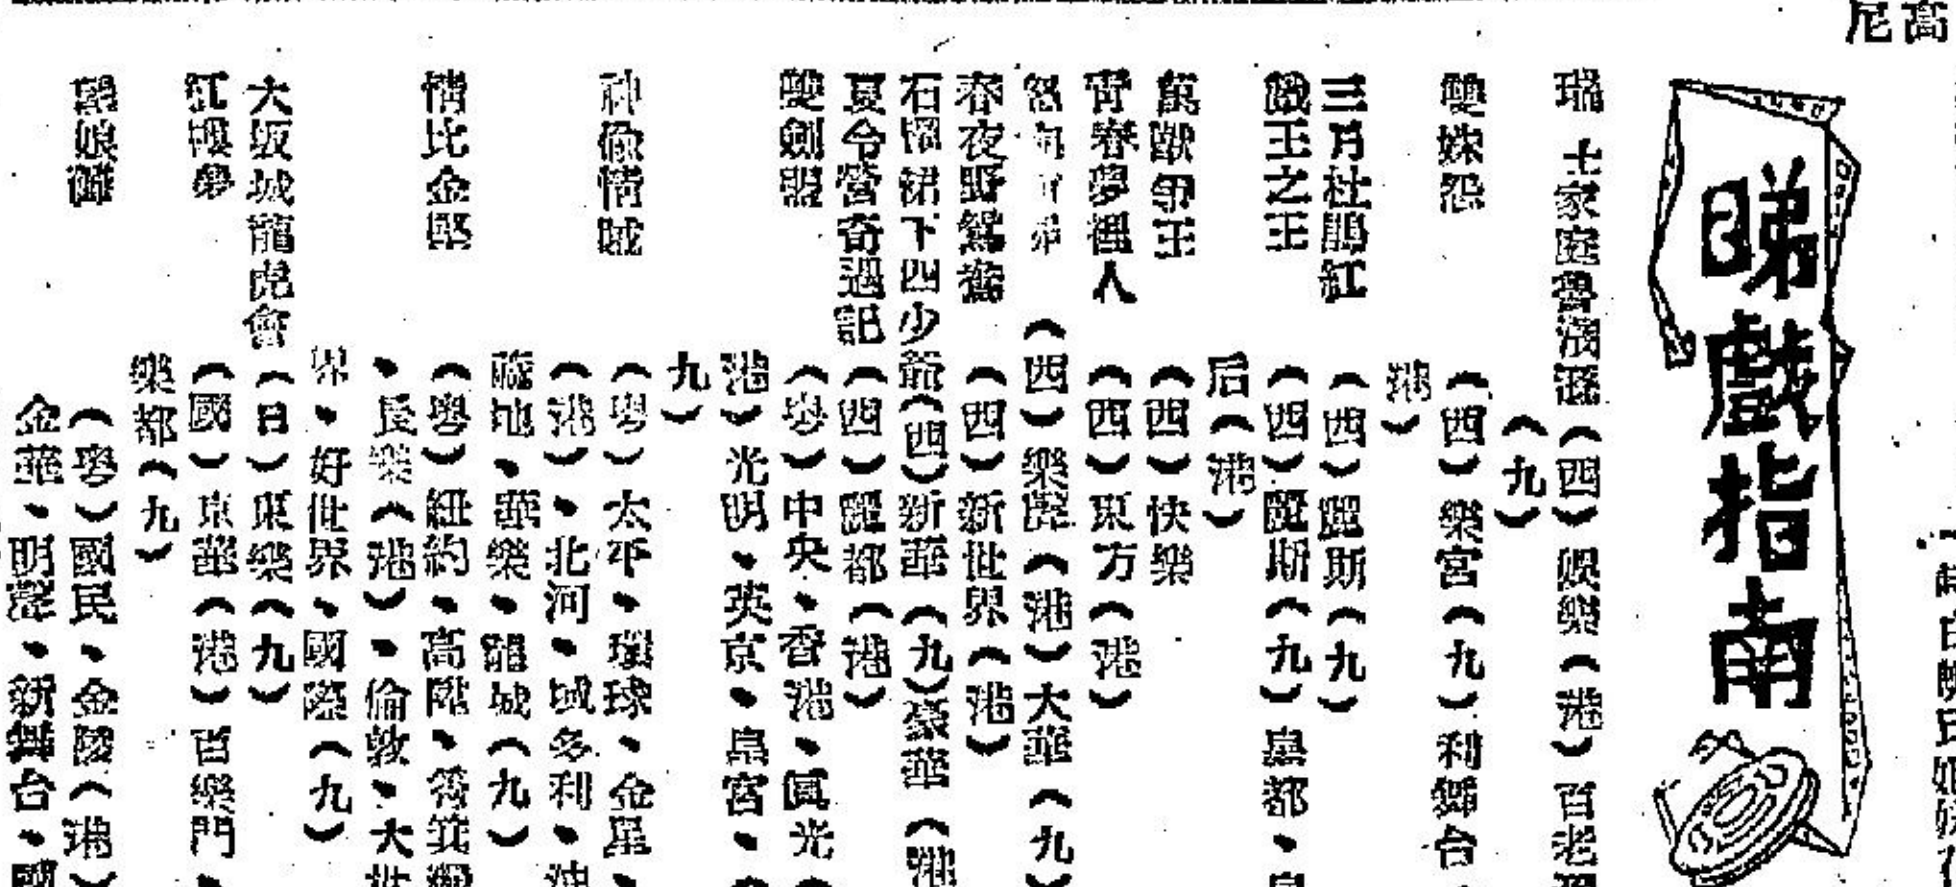 睇戲指南
瑞士家庭魯濱遜（西）娛樂（港）百老
（九）
雙姝怨（西）樂宮（九）利舞台
港）
三月杜鵑紅（西）麗斯（九）
蹤王之王（西）麗斯（九）皇都、皇
后（港）
萬獸爭王（西）快樂
青春夢裡人（西）東方（港）
怒海（西）樂宮（港）大華（九）
春夜野鴛鴦（西）新世界（港）
石榴裙下四少爺（西）新華（九）豪華（港
夏令營奇遇記（西）麗都（港）
雙劍盟（粵）中央、香港、眞光（
港）光明、英京、皇宮、
九）
神偸情賊（粵）太平、環球、金星、
（港）、北河、域多利、油
蔴地、華樂、龍城（九）
情比金堅（粵）紐約、高陞、筲箕灣
、長樂（港）、倫敦、大世
界、好世界、國際（九）
大坂城龍虎會（日）東樂（九）
紅樓夢（國）東華（港）百樂門、
樂都（九）
娘（粵）國民、金陵（港）
金華、明聲、新舞台、國